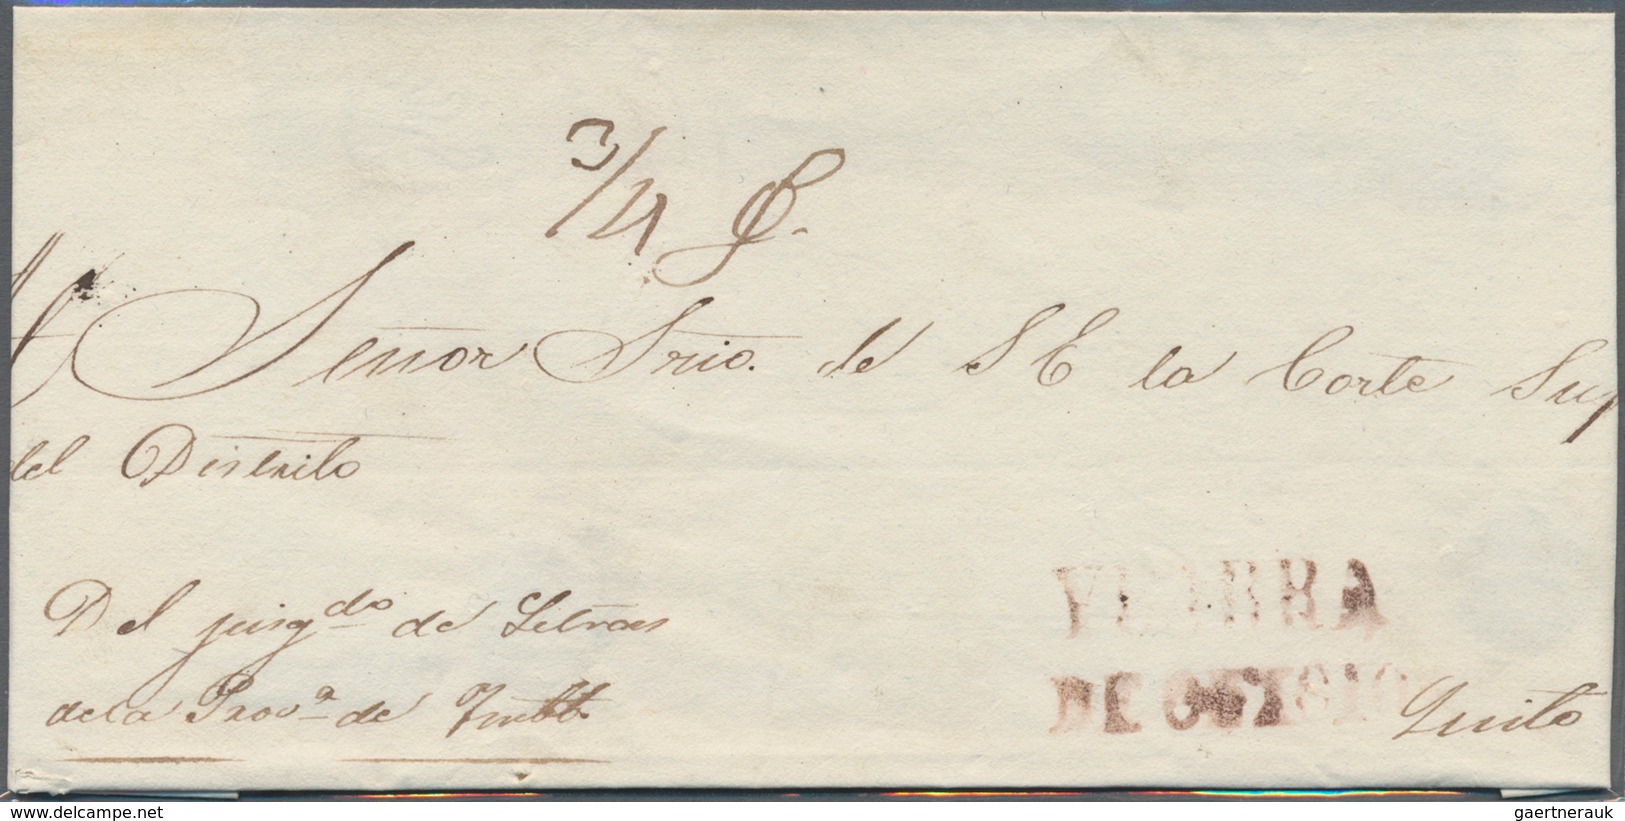 3/4 P.
Al Señor Srio. de S E la Corte Sup
del Distrito
Del juzgdo de Letras
dela Prova de Imbb
YBARRA
DE OFISIO
Quito
delcampe.net
gaertnerauk